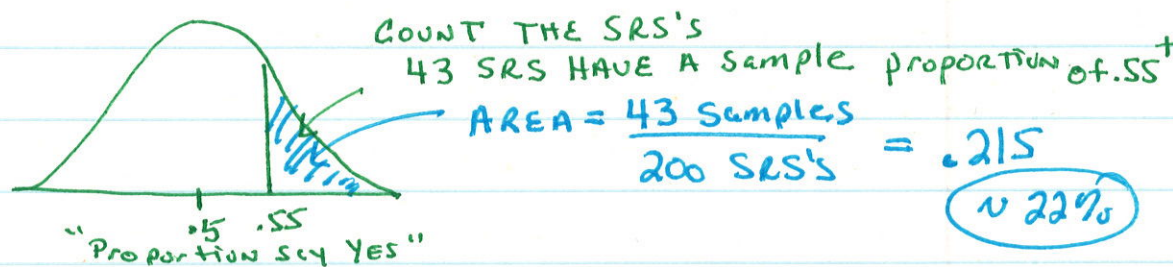 COUNT THE SRS'S
43 SRS HAVE A Sample proportion of .55+
AREA = 43 Samples / 200 SRS's = .215
~ 22%
.5 .55
"Proportion say YES"